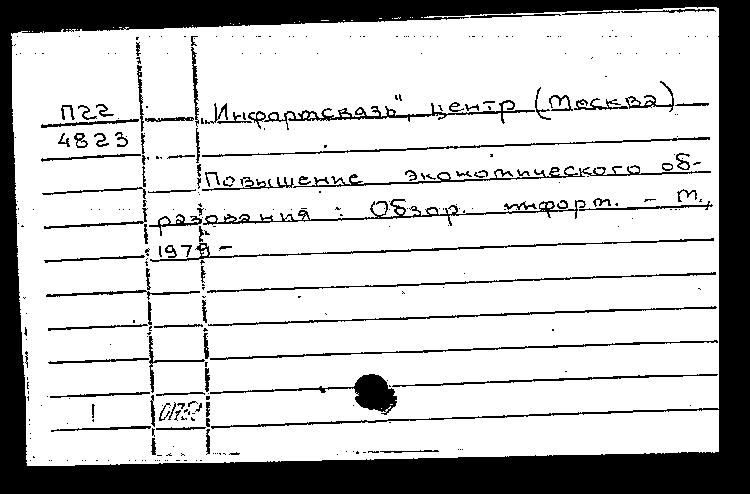 П22 „Информсвязь", центр (Москва)
4823
Повышение экономического об-
разования : Обзор. информ. – М.,
1979 –
1